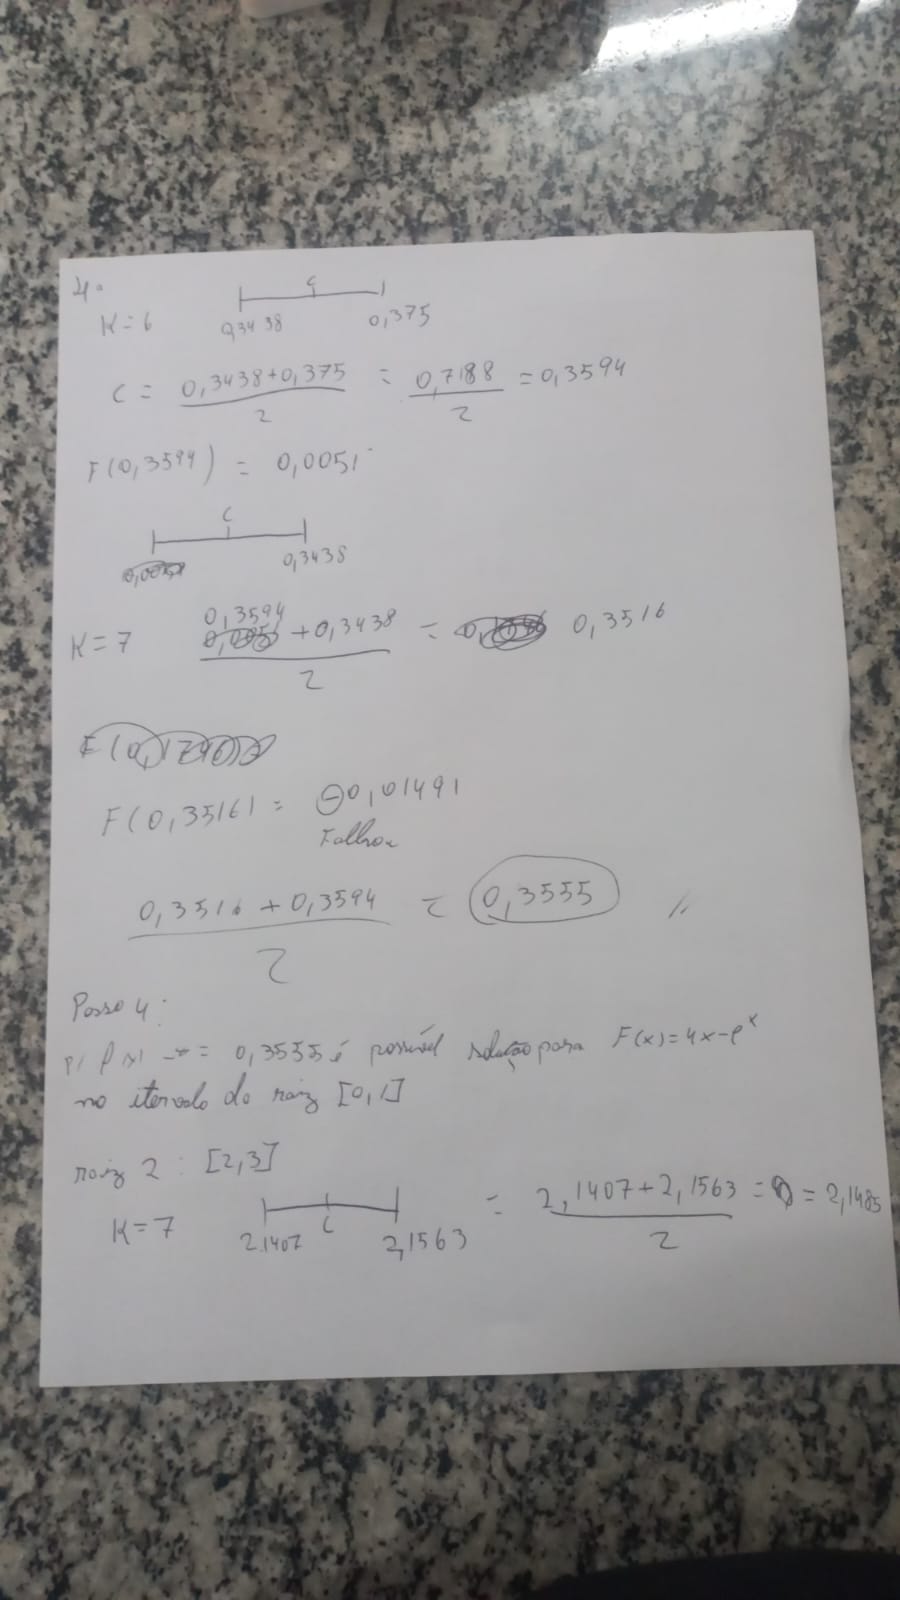 4.
K=6
c
0,3438 0,375
C = 0,3438+0,375 / 2 = 0,7188 / 2 = 0,3594
F(0,3594) = 0,0051
c
0,3438
K=7 0,3594 + 0,3438 / 2 = 0,3516
F(0,3516) = -0,01491
Falhou
0,3516 + 0,3594 / 2 = 0,3555
Passo 4:
p/ = 0,3555 é possível solução para F(x)=4x-e^x
no itervalo da raiz [0,1]
raiz 2 : [2,3]
K=7 = 2,1407+2,1563 / 2 = = 2,1485
2.1407 c 2,1563